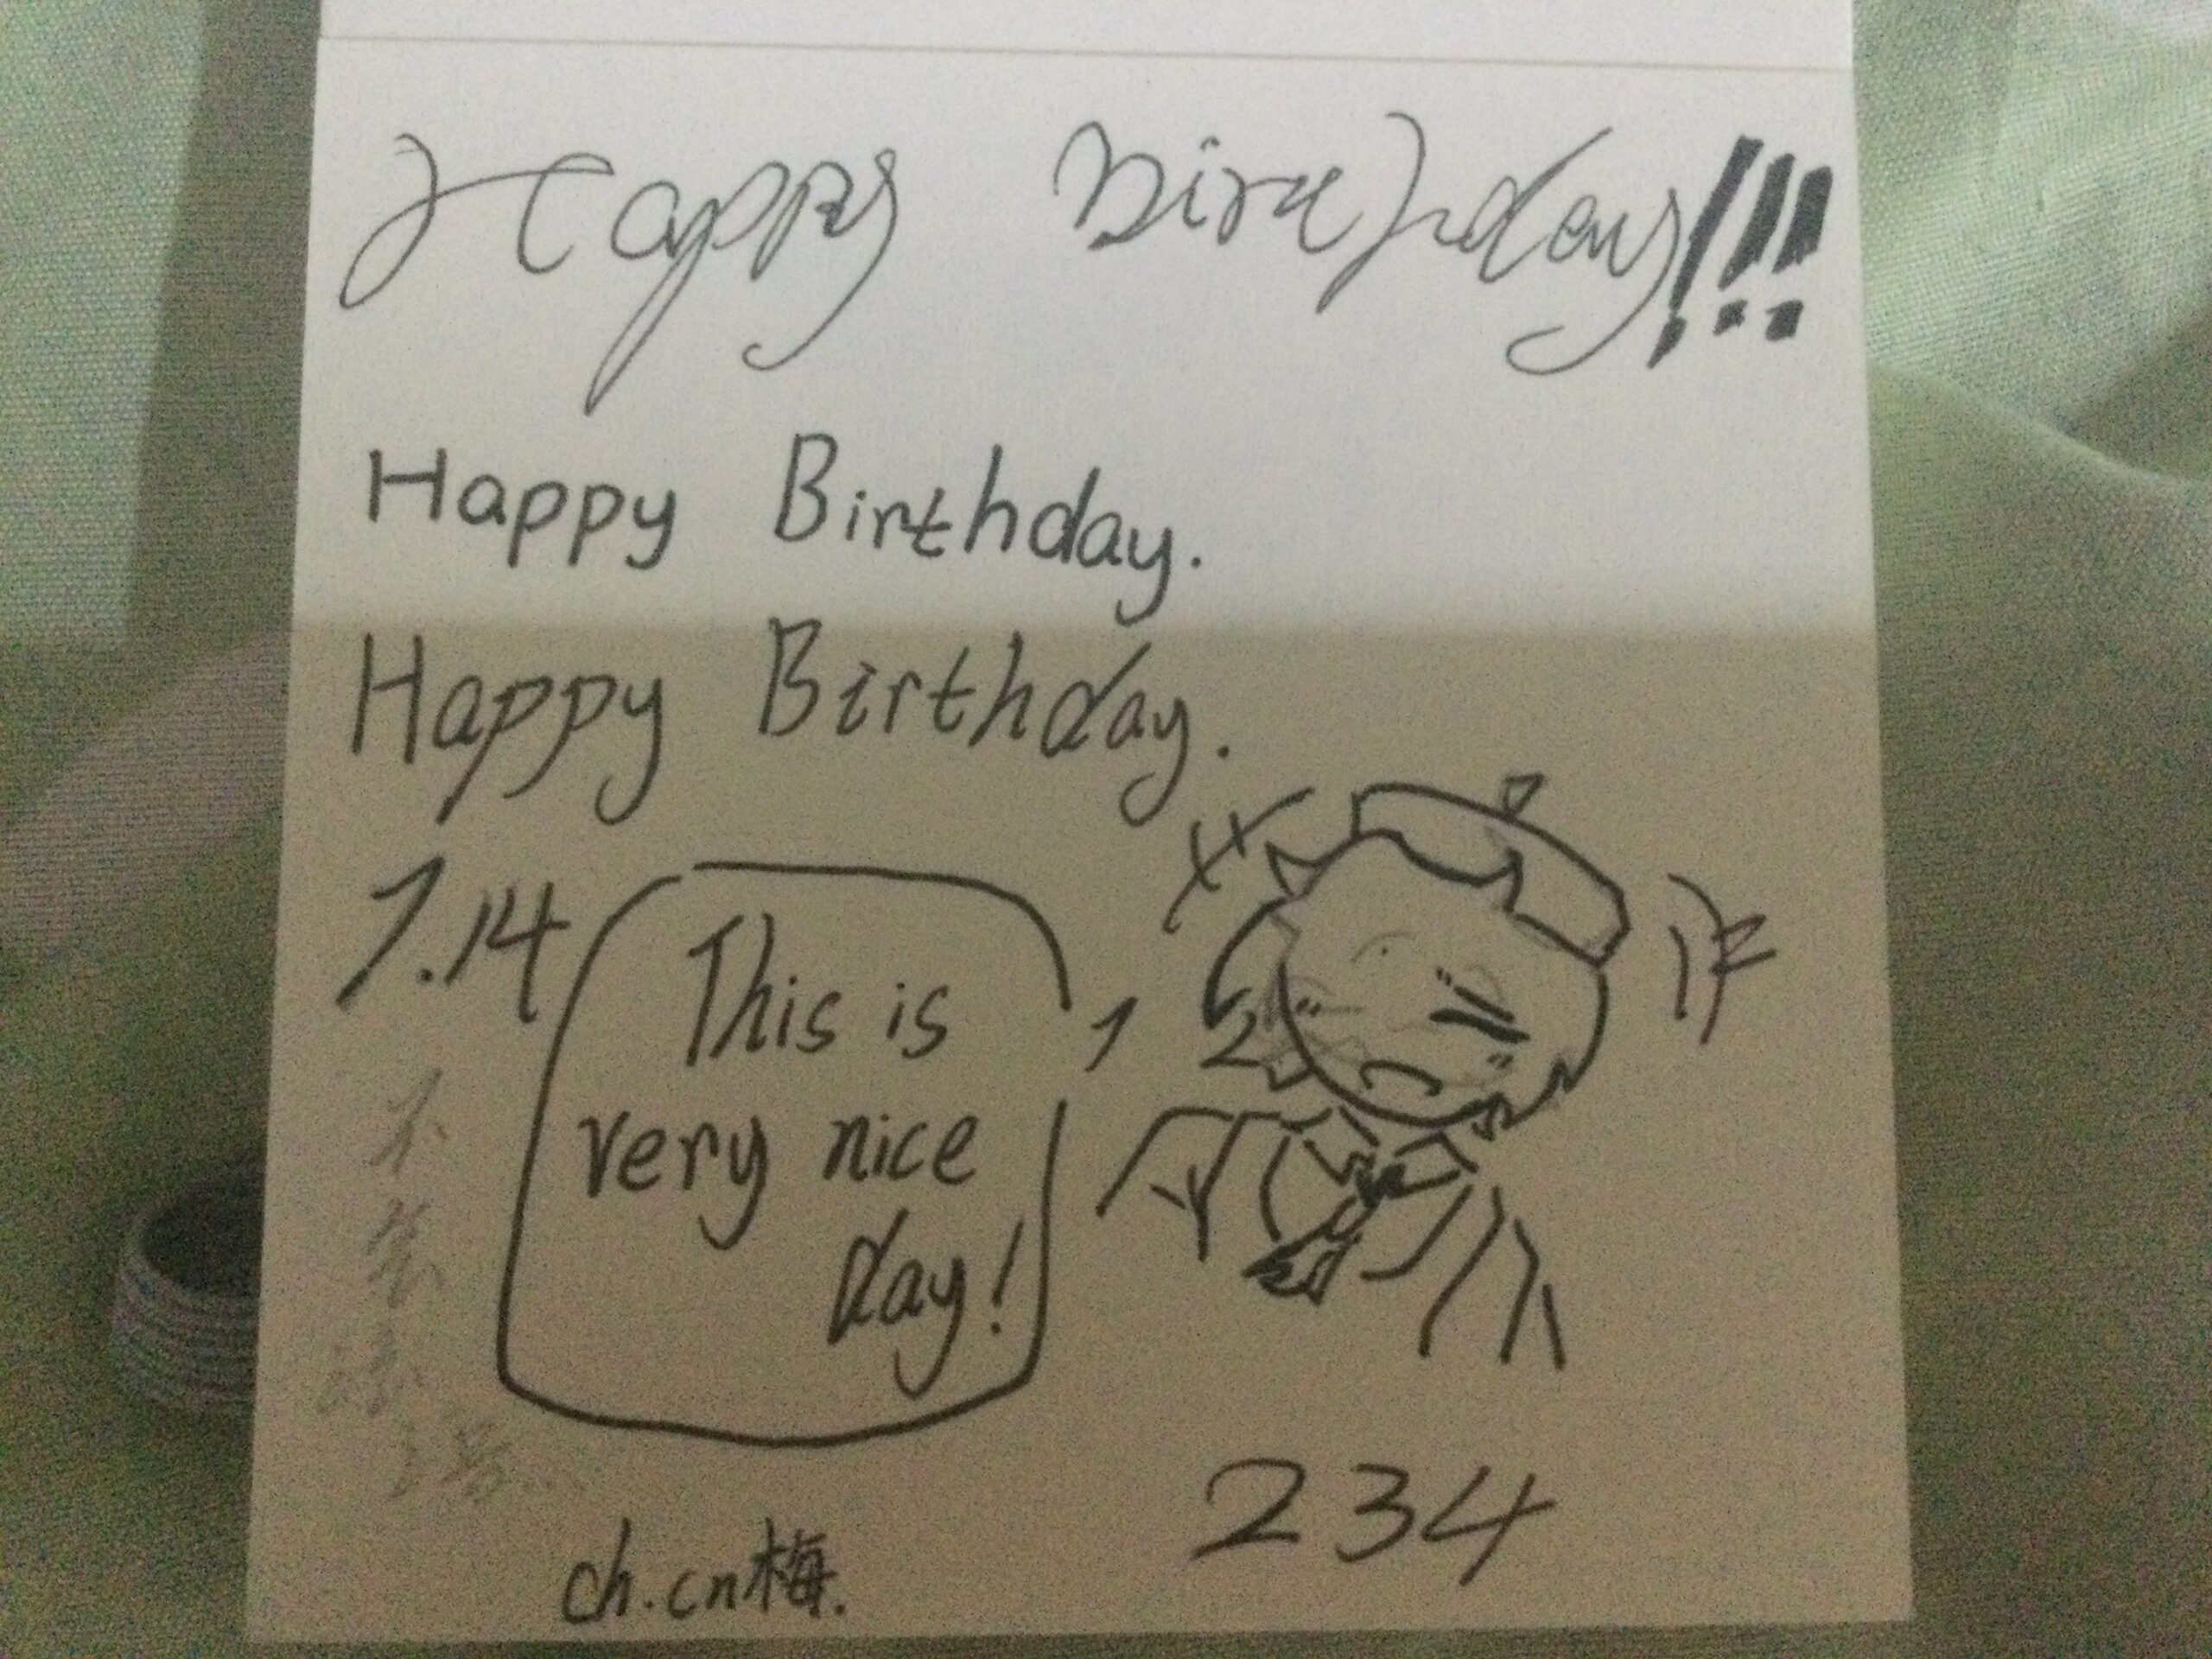 Happy Birthday!!!
Happy Birthday.
Happy Birthday.
7.14
This is
very nice
day!
1 2
234
ch.cn梅.